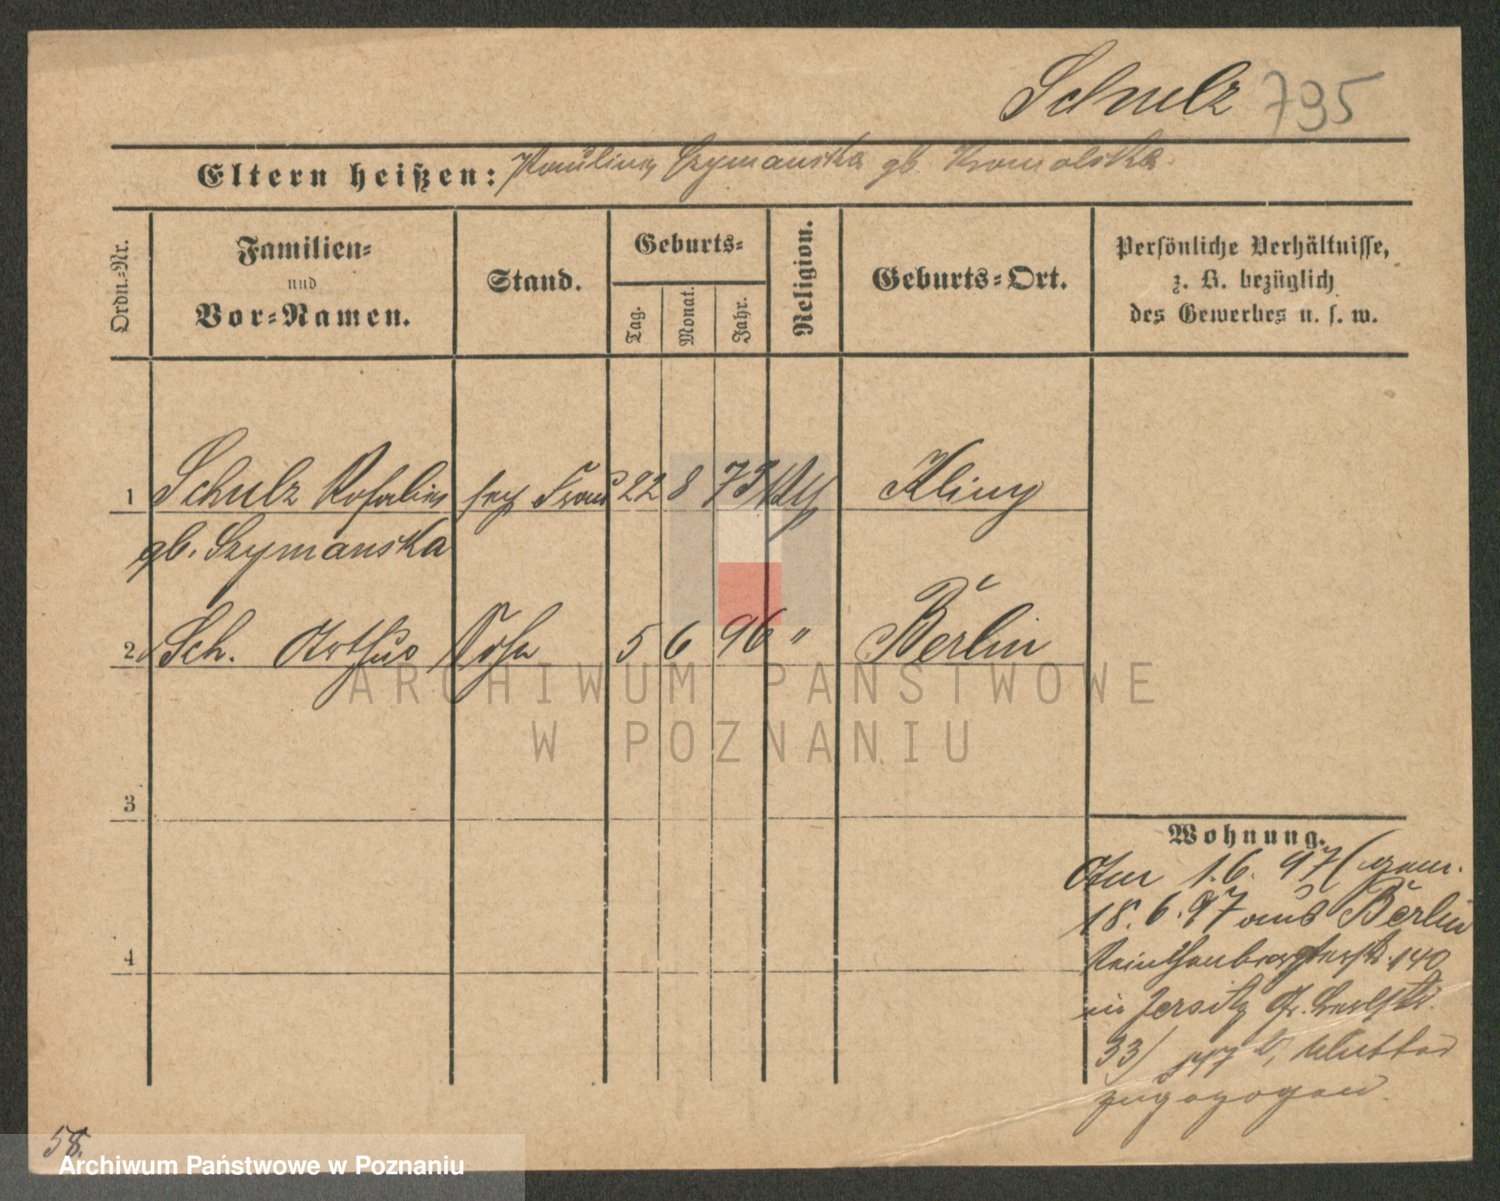 Schulz 795
Eltern heißen: Paulina Szymanska gb. Kowalska
Ordn.-Nr.
Familien-
und
Vor-Namen.
Stand.
Geburts-
Tag.
Monat.
Jahr.
Religion.
Geburts-Ort.
Persönliche Verhältnisse,
z. B. bezüglich
des Gewerbes u. s. w.
1 Schulz Rosalie Frau 22 8 73 Kling
gb. Szymanska
2 Sch. Arthur Sohn 5 6 96 " Berlin
3
4
Wohnung.
Am 1.6.97 (gem.
18.6.97 aus Berlin
140
in Jersitz
33)
zugezogen.
58.
ARCHIWUM PAŃSTWOWE
W POZNANIU
Archiwum Państwowe w Poznaniu